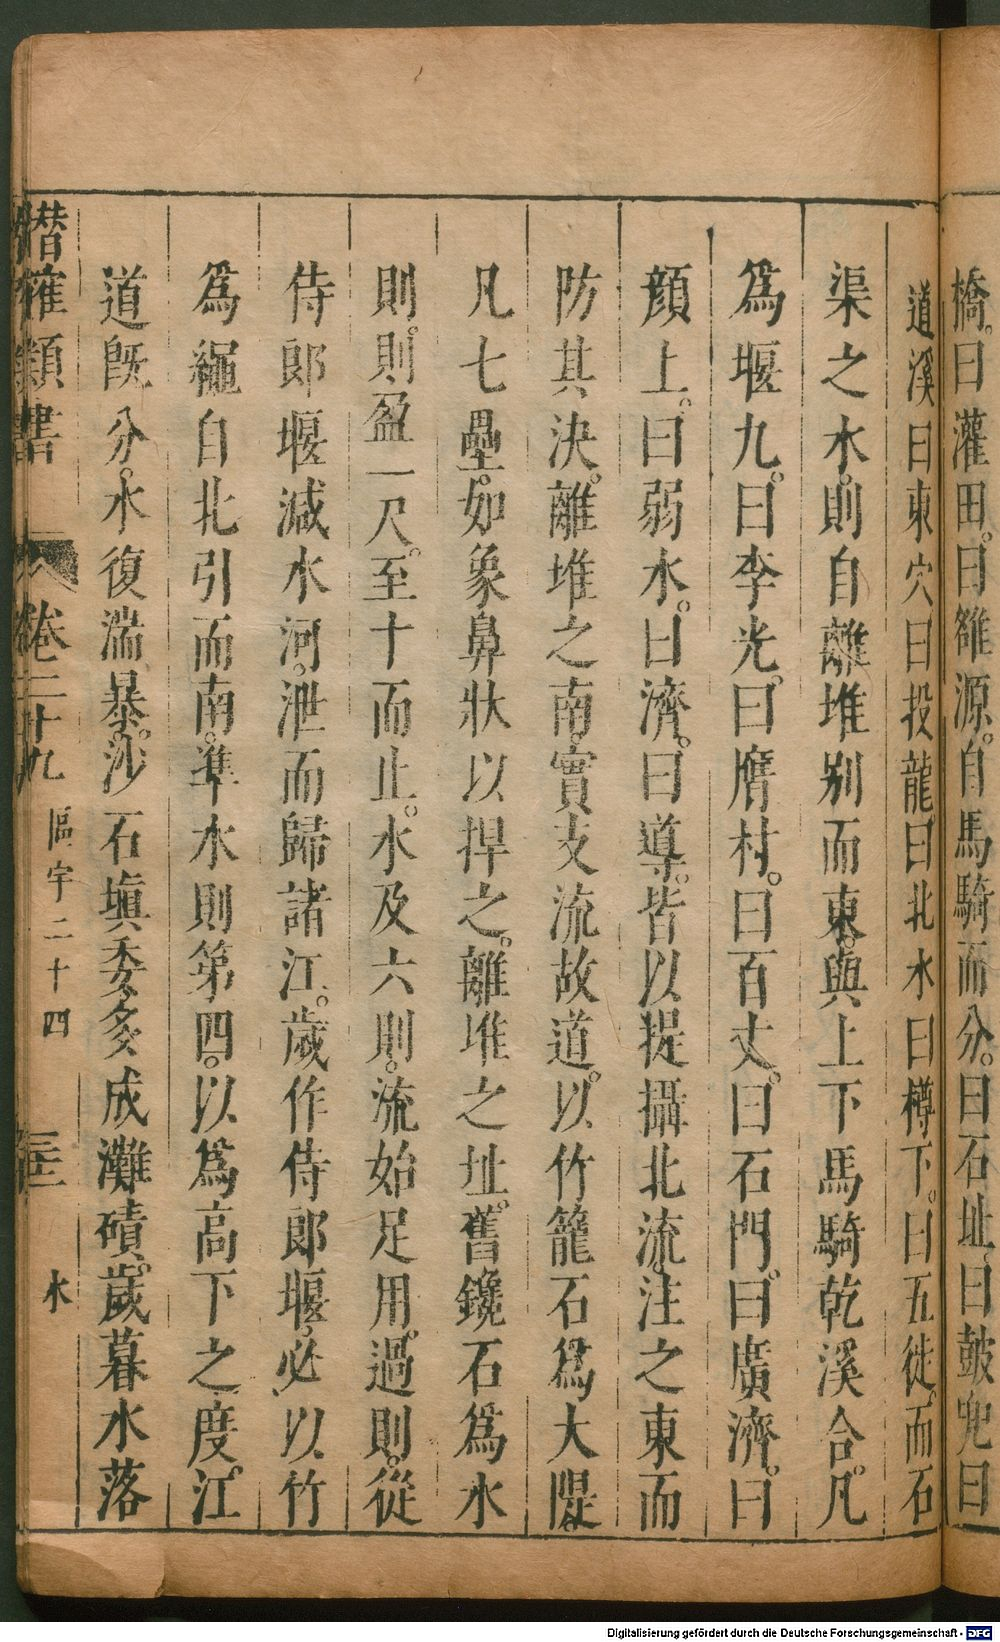 橋。曰灌田。曰雒源。自馬騎而分。曰石址。曰鼓兜曰
道溪曰東穴曰投龍曰北水曰樽下。曰五徒。而石
渠之水。則自離堆別而東。與上下馬騎乾溪合。凡
爲堰九。曰李光。曰膺村。曰百丈。曰石門。曰廣濟。曰
顏上。曰弱水。曰濟。曰導。皆以提攝北流。注之東而
防其決。離堆之南。實支流故道。以竹籠石爲大隄。
凡七壘。如象鼻狀以捍之。離堆之址。舊鑱石爲水
則。則盈一尺。至十而止。水及六則。流始足用。過則。從
侍郎堰減水河。泄而歸諸江。歲作侍郎堰。必以竹
爲繩自北引而南。準水則第四。以爲高下之度。江
道旣分。水復湍暴。沙石塡委多成灘磧。歲暮水落
潛確類書 卷二十九 區宇二十四 水
Digitalisierung gefördert durch die Deutsche Forschungsgemeinschaft - DFG